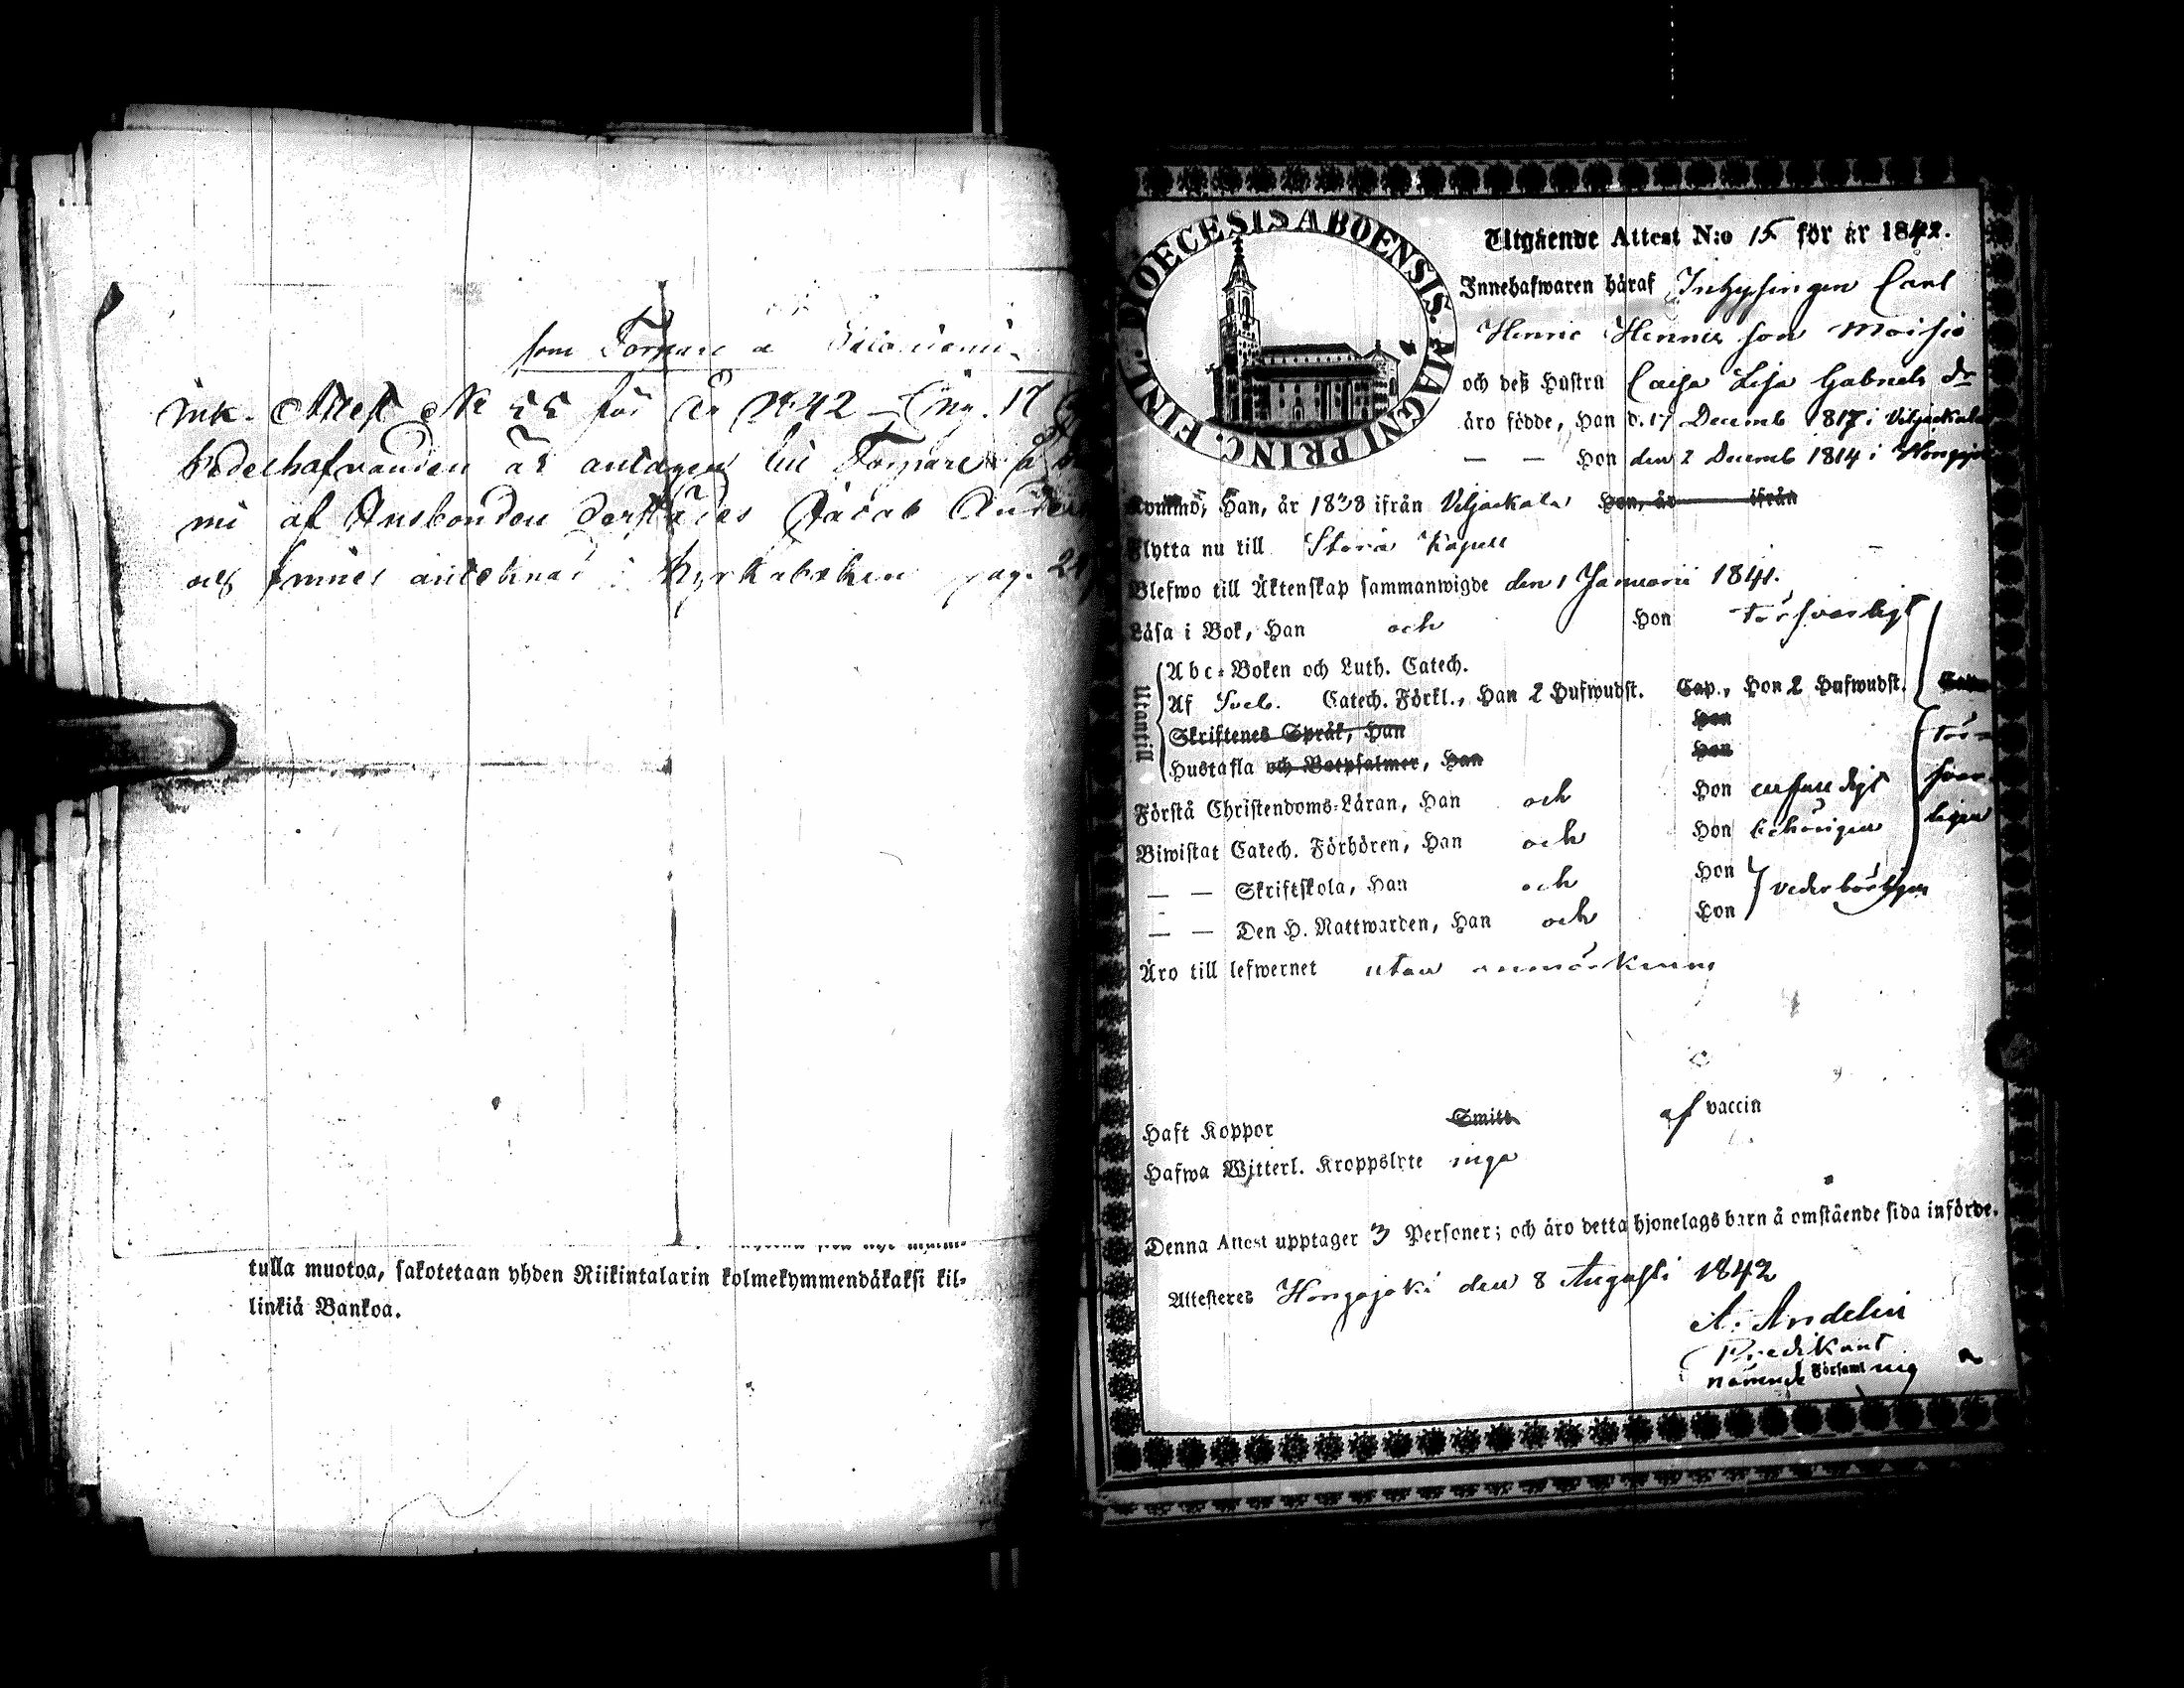 som Torpare a
ink. Attest No 55 för år 1842 Ing. 17
är antagen till Torpare å
mi af Rusbonden derstädes Jacob
och finnes antecknad i Kyrkoboken pag.
tulla muotoa, sakotetaan yhden Riikintalarin kolmekymmendäkaksi kil-
linkiä Bankoa.
DIOECESIS ABOENSIS. MAGNI PRINC. FINL.
Utgående Attest N:o 15 för år 1842.
Innehafwaren häraf Inhysingen Carl
Henric Henrics son Moisio
och deß Hustru Caisa Lisa Gabriels dr
äro födde, Han d. 17 Decemb 1817 i Viljackala
— — Hon den 2 Decemb 1814 i
Komne, Han, år 1838 ifrån Viljackala Hon, år ifrån
Flytta nu till Storå Kapell
Blefwo till Äktenskap sammanwigde den 1 Januarii 1841.
Läsa i Bok, Han och Hon försvarligt
Utantill
Abc-Boken och Luth. Catech.
Af Sveb. Catech. Förkl., Han 2 Hufwudst. Cap., Hon 2 Hufwudst.
Skriftenes Språk, Han Hon
Hustafla och Botpsalmer, Han Hon
för-
svar-
ligen
Förstå Christendoms-Läran, Han och Hon enfaldigt
Biwistat Catech. Förhören, Han och Hon behörigen
— — Skriftskola, Han och Hon
— — Den H. Nattwarden, Han och Hon vederbörligen
Äro till lefwernet utan anmärkning
Haft Koppor Smitt. af vaccin
Hafwa Witterl. Kroppslyte inga
Denna Attest upptager 3 Personer; och äro detta hjonelags barn å omstående sida införde.
Attesteres Hongojoki den 8 Augusti 1842
A. Andelin
Predikant
Församl